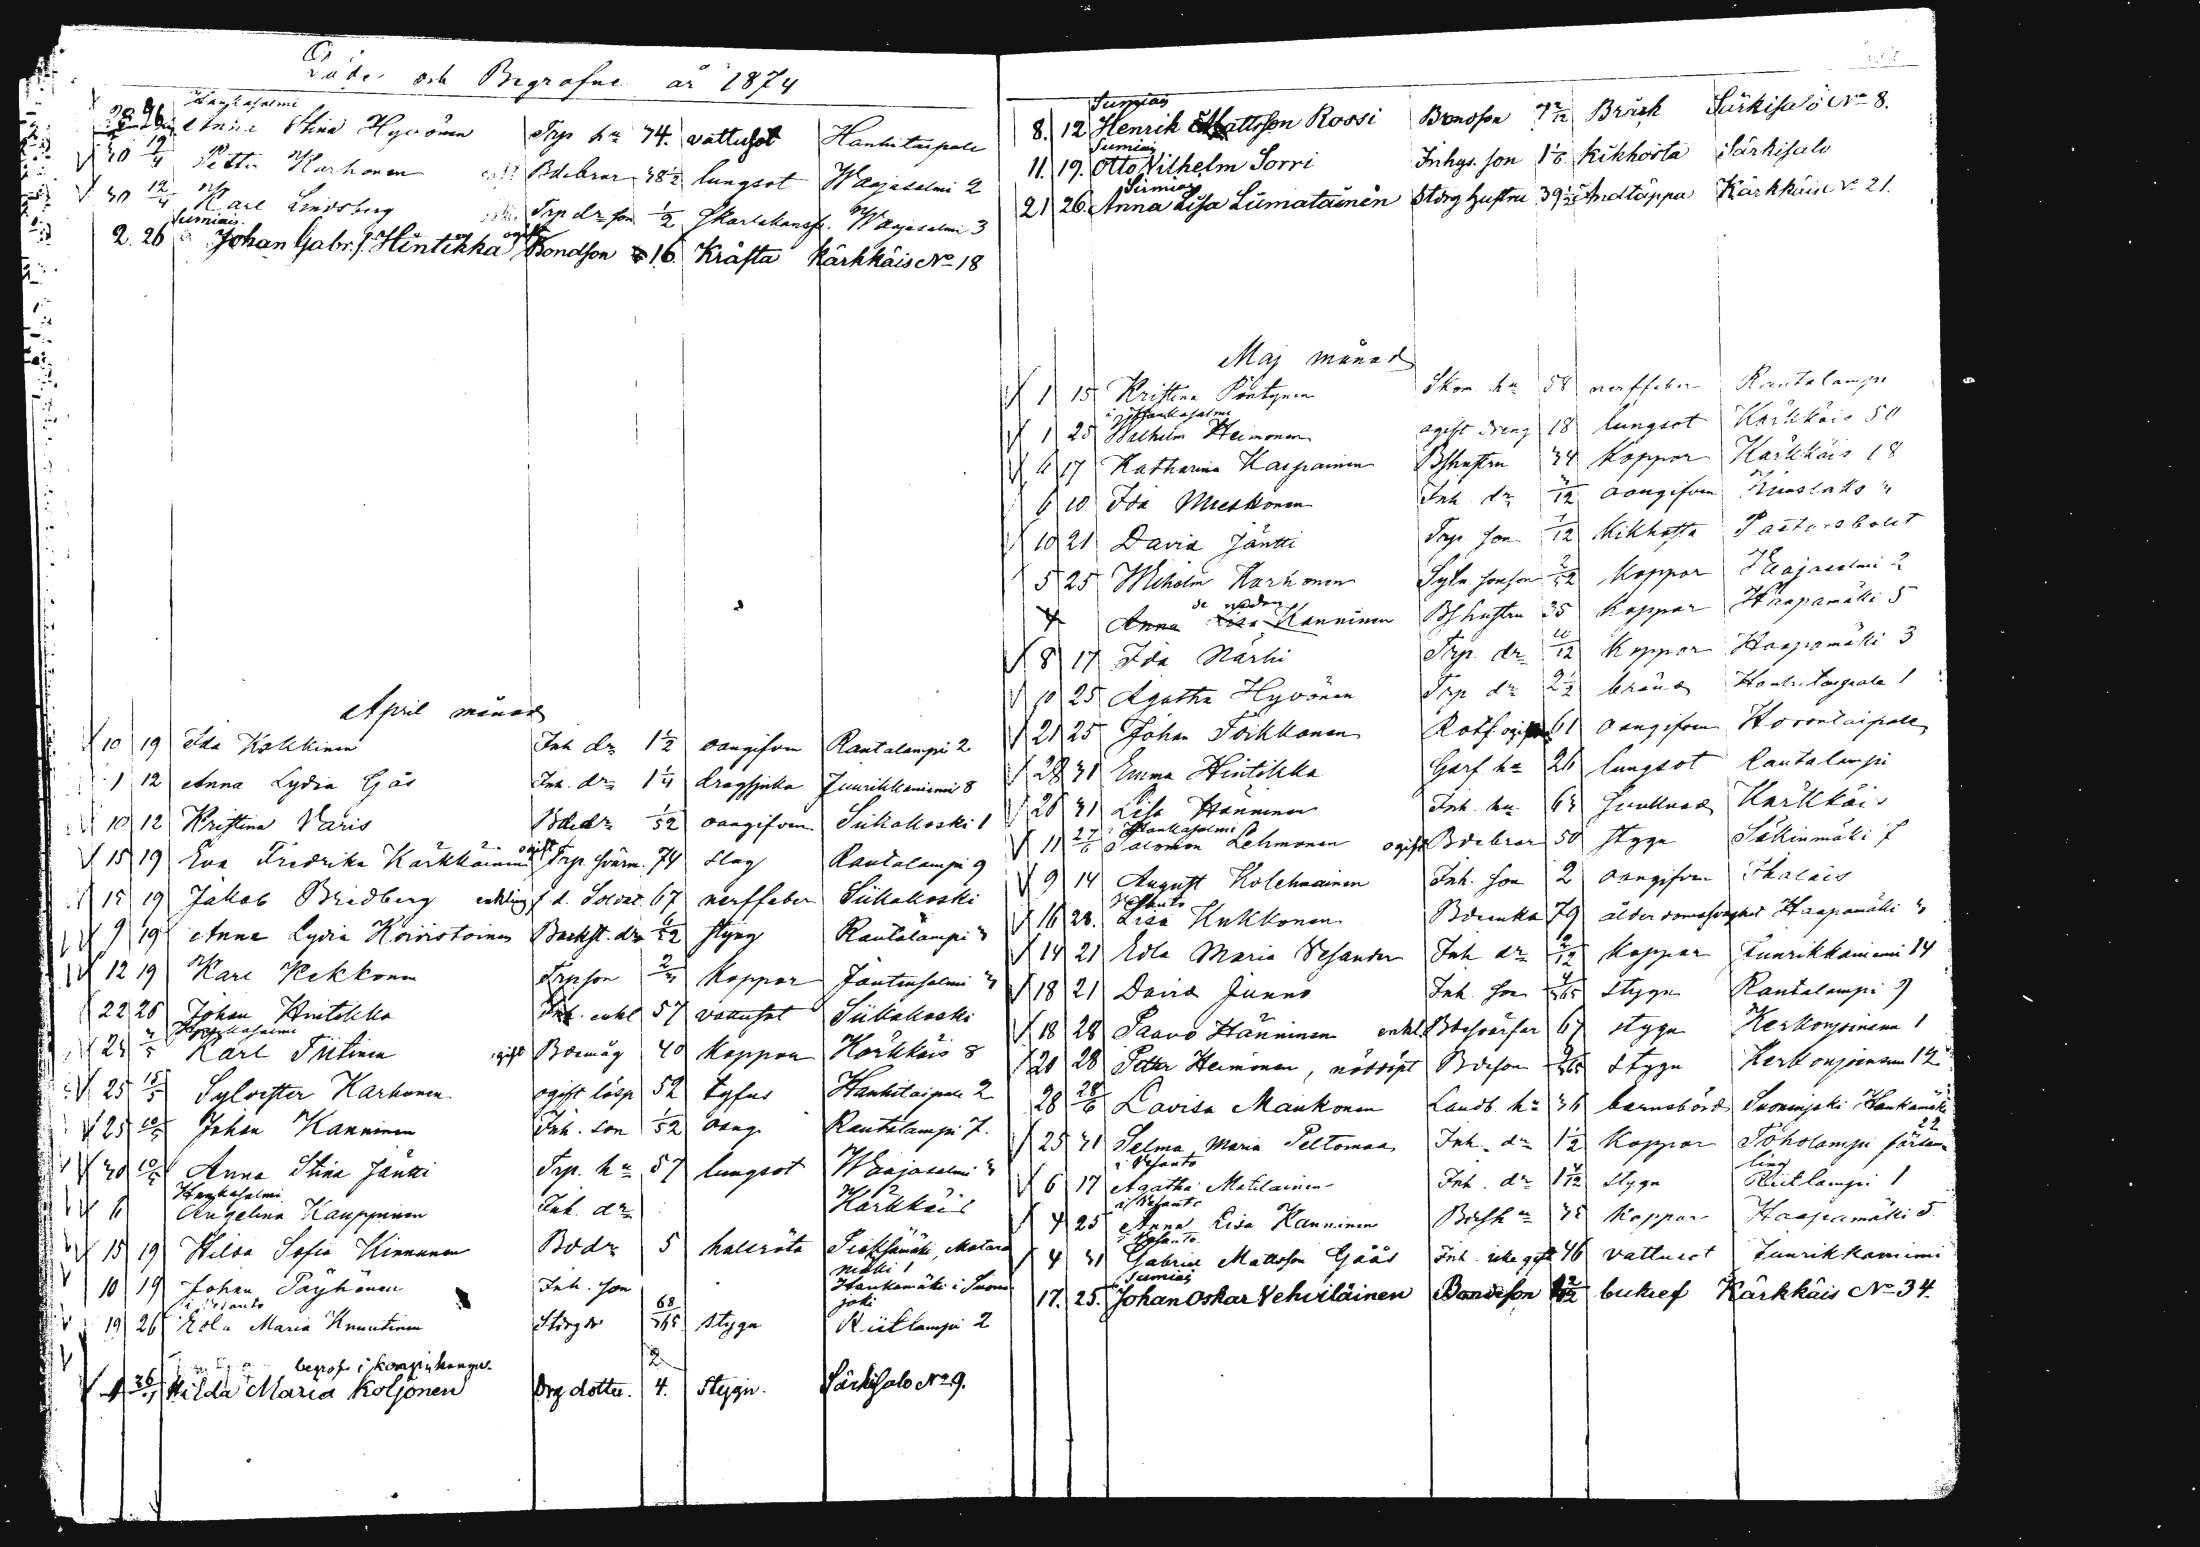 Döde och Begrafne år 1874
Hankasalmi
Anna Stina Hyvönen Trp hu 74. vattusot Hankitaipale
30 19/4 Petter Karhonen Bdebror 38 1/2 lungsot Waajasalmi 2
30 12/4 Karl Lindsberg Trp dr son 1/2 Skarlakansf. Waajasalmi 3
Sumiais
2. 26 Johan Gabr. Hintikka ogift Bondson 16. Kräfta Kärkkäis No 18
April månad
10 19 Ida Kokkinen Inh dr 1 1/2 oangifven Rantalampi 2
1 12 Anna Lydia Gås Inh. dr 1 1/4 dragsjuka Juurikkaniemi 8
10 12 Kristina Varis Bdedr 1/52 oangifven Siikakoski 1
15 19 Eva Fredrika Kärkkäinen ogift Trp svärm. 74 slag Rantalampi 9
15 19 Jakob Bredberg enkling f. d. Soldat 67 nerffeber Siikakoski
9 19 Anna Lydia Koivistoinen Backst. dr 6/52 styng Rantalampi 3
12 19 Karl Kekkonen Trpson 2/ koppor Jäntinsalmi 3
22 26 Johan Hintikka Inh. enkl 57 vattusot Siikakoski
Hankasalmi
23 /5 Karl Tiitinen ogift Bdemåg 40 koppor Kärkkäis 8
25 15/5 Sylvester Karhonen ogift lösp 52 tyfus Hankitaipale 2
25 10/5 Johan Kanninen Inh. son 1/52 oang. Rantalampi 7.
30 10/5 Anna Stina Jäntti Trp. hu 57 lungsot Waajasalmi 3
Hankasalmi
6 Angelina Kauppinen Inh. dr Kärkkäis
15 19 Hilda Sofia Kinnunen Bdedr 5 halsröta Pieksämäki, Matara
mäki 1
10 19 Johan Päyhönen Inh. son Hankamäki i Suonen
joki
i Vesanto
19 26 Edla Maria Knuutinen Störgdr 68/365 stygn Riitlampi 2
begrof. i Kongin
26/ Hilda Maria Koljonen Drg dotter. 2 4. Stygn. Särkisalo No 9.
Sumiais
8. 12 Henrik Mattsson Rossi Bondson 7 2/12 Bråck Särkisalo No 8.
Sumiais
11. 19. Otto Vilhelm Sorri Inhys. son 1 1/6 kikhosta Särkisalo
Sumiais
21 26 Anna Lisa Liimatainen Storg hustru 39 Andtäppa Kärkkäis No 21.
Maj månad
1 15 Kristina Pöntynen Skom. hu 58 nerffeber Rantalampi
i Hankasalmi
1 25 Wilhelm Heimonen ogift dreng 18 lungsot Kärkkäis 50
6 17 Katharina Kaipainen Bshustru 34 Koppor Kärkkäis 18
6 10 Ida Mieskonen Inh. dr /12 oangifven
10 21 David Jäntti Trp son 1/12 kikhosta Pastorsbolet
5 25 Wilhelm Karhonen Sytn. sonson /52 Koppor Waajasalmi 2
se nedan
4 Anna Lisa Kanninen Bshustru 35 Koppor Haapamäki 5
8 17 Ida Närhi Trp. dr 10/12 koppor Haapamäki 3
10 25 Agatha Hyvönen Trp dr 2 1/2 bränd Hankitaipale 1
21 25 Johan Toikkonen Rotf. ogift 61 oangifven Horontaipale
28 31 Emma Hintikka Garf hu 26 lungsot Rantalampi
26 31 Lisa Hänninen Inh. hu 63 Kärkkäis
i Hankasalmi
11 27/6 Salomon Lehmonen ogift Bdebror 50 stygn Säkinmäki 7
9 14 August Kolehmainen Inh. son 2 oangifven Ihalais
Vesanto
16 28. Lisa Kukkonen Bdeenka 79 ålderdomssvaghet Haapamäki 3
14 21 Edla Maria Vesander Inh dr /12 koppor Juurikkaniemi 14
18 21 David Junno Inh. son 4/365 stygn Rantalampi 9
18 28 Paavo Hänninen enkl. Bdesvärfar 67 stygn Kerkonjoensuu 1
20 28 Petter Heimonen, nöddöpt Bdeson /365 stygn Kerkonjoensuu 12
28 28/6 Lovisa Maukonen Landb. hu 36 barnsbörd Suonenjoki Hankamäki
22
25 31 Selma Maria Peltomaa Inh. dr 1 1/2 Koppor Toholampi församling
i Vesanto
6 17 Agatha Matilainen Inh. dr 1 4/12 stygn Riitlampi 1
i Vesanto
4 25 Anna Lisa Kanninen Bdeshu 35 koppor Haapamäki 5
i Vesanto
4 31 Gabriel Mattsson Gåås Inh. icke gift 46 vattusot Juurikkaniemi
Sumiais
17. 25. Johan Oskar Vehviläinen Bondeson 2/12 bukref Kärkkäis No 34.